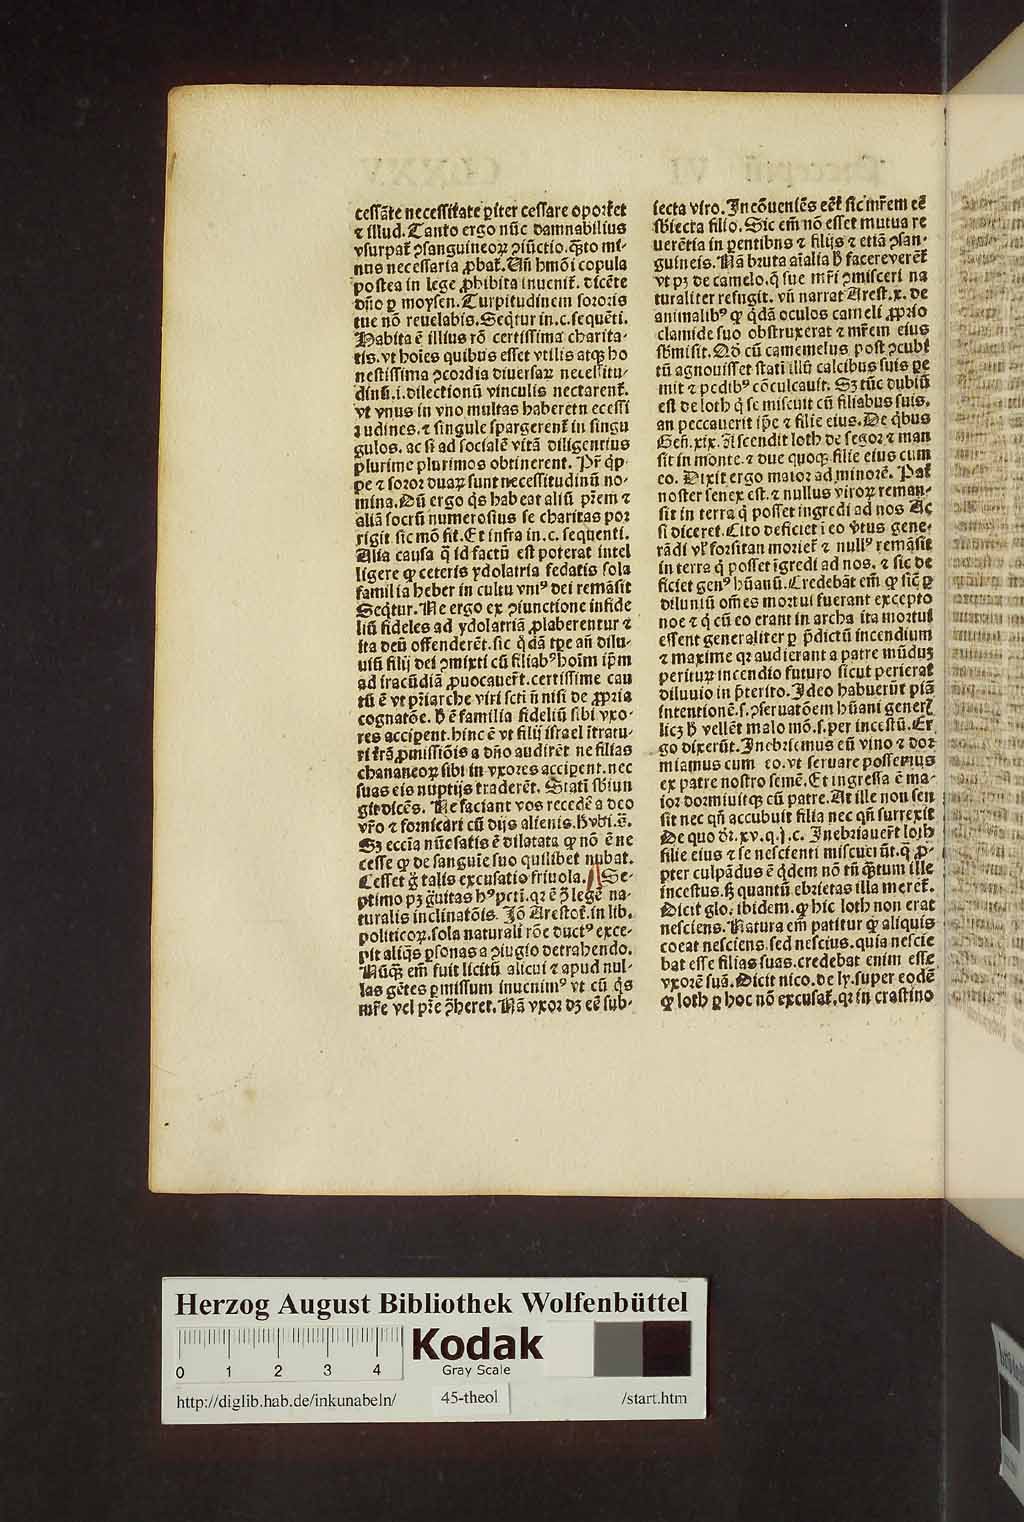 cessāte necessitate ꝑiter cessare oportet
⁊ illud. Tanto ergo nūc damnabilius
vsurpat̄ ꝯsanguineoꝝ ꝯiūctio. q̄sto mi-
nus necessaria ꝓbat̄. Un̄ hmōi copula
postea in lege ꝓhibita inuenit̄. dicēte
dn̄o ꝑ moysen. Turpitudinem sororis
tue nō reuelabis. Seq̄tur in. c. sequēti.
Habita ē illius rō certissima charita-
tis. vt hoīes quibus esset vtilis atqꝫ ho
nestissima ꝯcordia diuersaꝝ necessitu-
dinū. i. dilectionū vinculis nectarent̄.
vt vnus in vno multas haberetn ecessi
tudines. ⁊ singule spargerent̄ in singu
gulos. ac si ad socialē vitā diligentius
plurime plurimos obtinerent. Pr̄ q̄p-
pe ⁊ socer duaꝝ sunt necessitudinū no-
mina. Cū ergo q̄s habeat aliū pr̄em ⁊
aliā socrū numerosius se charitas por
rigit sic mō fit. Et infra in. c. sequenti.
Alia causa q̄ id factū est poterat intel
ligere ꝙ ceteris ydolatria fedatis sola
familia heber in cultu vniꝰ dei remāsit
Seq̄tur. Ne ergo ex ꝯiunctione infide
liū fideles ad ydolatriā ꝓlaberentur ⁊
ita deū offenderēt. sic q̄dā tꝑe an̄ dilu-
uiū filij dei ꝯmixti cū filiabꝰ hoīm ip̄m
ad iracūdiā ꝓuocauer̄t. certissime cau
tū ē vt pr̄iarche viri scti n̄ nisi de ꝓpria
cognatōe. h̄ ē familia fideliū sibi vxo-
res acciperent. hinc ē vt filij israel ītratu-
ri tr̄ā ꝓmissiōis a dn̄o audirēt ne filias
chananeoꝝ sibi in vxores acciperent. nec
suas eis nuptijs traderēt. Statī sbiun
git dicēs. Ne faciant vos recedē a deo
vr̄o ⁊ fornicari cū dijs alienis. H̄ vbi. ē.
Sꝫ eccīa nūc satis ē dilatata ꝙ nō ē ne
cesse ꝙ de sanguīe suo quilibet nubat.
Cesset g̊ talis excusatio friuola. Se-
ptimo pꝫ g̊uitas hꝰ pcti. qꝛ ē ꝯ̄ legē na-
turalis inclinatōis. Jō Arestot. in lib.
politicoꝝ. sola naturali rōe ductꝰ exce-
pit aliq̄s ꝑsonas a ꝯiugio detrahendo.
Nūqꝫ em̄ fuit licitū alicui ⁊ apud nul-
las gētes ꝑmissum inuenimꝰ vt cū q̄s
mr̄e vel pr̄e ꝯ̄heret. Nā vxor dꝫ eē sub-
iecta viro. Incōueniēs eēt̄ sic mr̄em eē
sbiecta filio. Sic em̄ nō esset mutua re
uerētia in parentibus ⁊ filijs ⁊ etiā ꝯsan-
guineis. Nā bruta aīalia h̄ facere verēt̄
vt pꝫ de camelo. q̄ sue mr̄i ꝯmisceri na
turaliter refugit. vn̄ narrat Arest. x. de
animalibꝰ ꝙ q̄dā oculos cameli ꝓprio
clamide suo obstruxerat ⁊ mr̄em eius
sbmisit. Qd̄ cū camemelus post ꝯcubi
tū agnouisset stati illū calcibus suis ꝑe
mit ⁊ pedibꝰ cōculcauit. Sꝫ tūc dubiū
est de loth q̄ se miscuit cū filiabus suis.
an peccauerit ip̄e ⁊ filie eius. De q̄bus
Gen̄. xix. Ascendit loth de segor ⁊ man
sit in monte. ⁊ due quoqꝫ filie eius cum
eo. Dixit ergo maior ad minorē. Pat̄
noster senex est. ⁊ nullus viroꝝ reman-
sit in terra q̄ posset ingredi ad nos Ac
si diceret. Cito deficiet i eo vr̄tus gene-
rādi vl̄ forsitan moriet̄ ⁊ nullꝰ remāsit
in terra q̄ posset īgredi ad nos. ⁊ sic de
ficiet genꝰ hūanū. Credebāt em̄ ꝙ sic̄ ꝑ
diluuiū om̄es mortui fuerant excepto
noe ⁊ q̄ cū eo erant in archa ita mortui
essent generaliter ꝑ p̄dictū incendium
⁊ maxime qꝛ audierant a patre mūduꝫ
perituꝝ incendio futuro sicut perierat
diluuio in p̄terito. Ideo habuerūt piā
intentionē. s. ꝯseruatōem hūani gener̄
licꝫ h̄ vellēt malo mō. s. per incestū. Er
go dixerūt. Inebriemus eū vino ⁊ dor
miamus cum eo. vt seruare possemus
ex patre nostro semē. Et ingressa ē ma-
ior dormiuitqꝫ cū patre. At ille non sen
sit nec qn̄ accubuit filia nec qn̄ surrexit
De quo dr̄. xv. q. j. c. Inebriauer̄t loth
filie eius ⁊ se nescienti miscuerūt. q̄ ꝓ-
pter culpādus ē q̄dem nō tn̄ q̄tum ille
incestus. sꝫ quantū ebrietas illa meret̄.
Dicit glo. ibidem. ꝙ hic loth non erat
nesciens. Natura em̄ patitur ꝙ aliquis
coeat nesciens. sed nescius. quia nescie
bat esse filias suas. credebat enim esse
vxorē suā. Dicit nico. de ly. super eodē
ꝙ loth ꝑ hoc nō excusat̄. qꝛ in crastino
Herzog August Bibliothek Wolfenbüttel
0 1 2 3 4
Kodak
Gray Scale
http://diglib.hab.de/inkunabeln/ 45-theol /start.htm